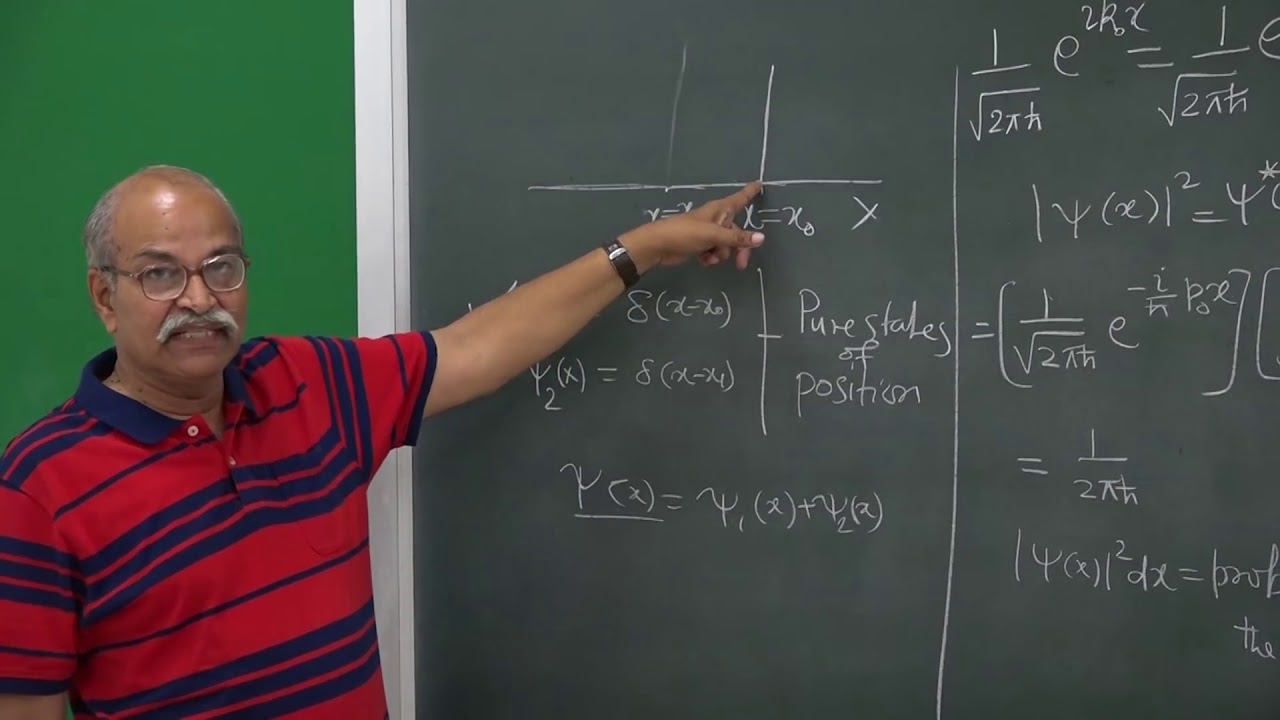 x=x₀ X
δ(x-x₀)
ψ₂(x) = δ(x-x₁)
Pure states
of
position
ψ(x) = ψ₁(x)+ψ₂(x)
1/√2πħ e^{ik₀x} = 1/√2πħ e
|ψ(x)|² = ψ*(
= [1/√2πħ e^{-i/ħ p₀x}] [
= 1/2πħ
|ψ(x)|²dx = prob
the